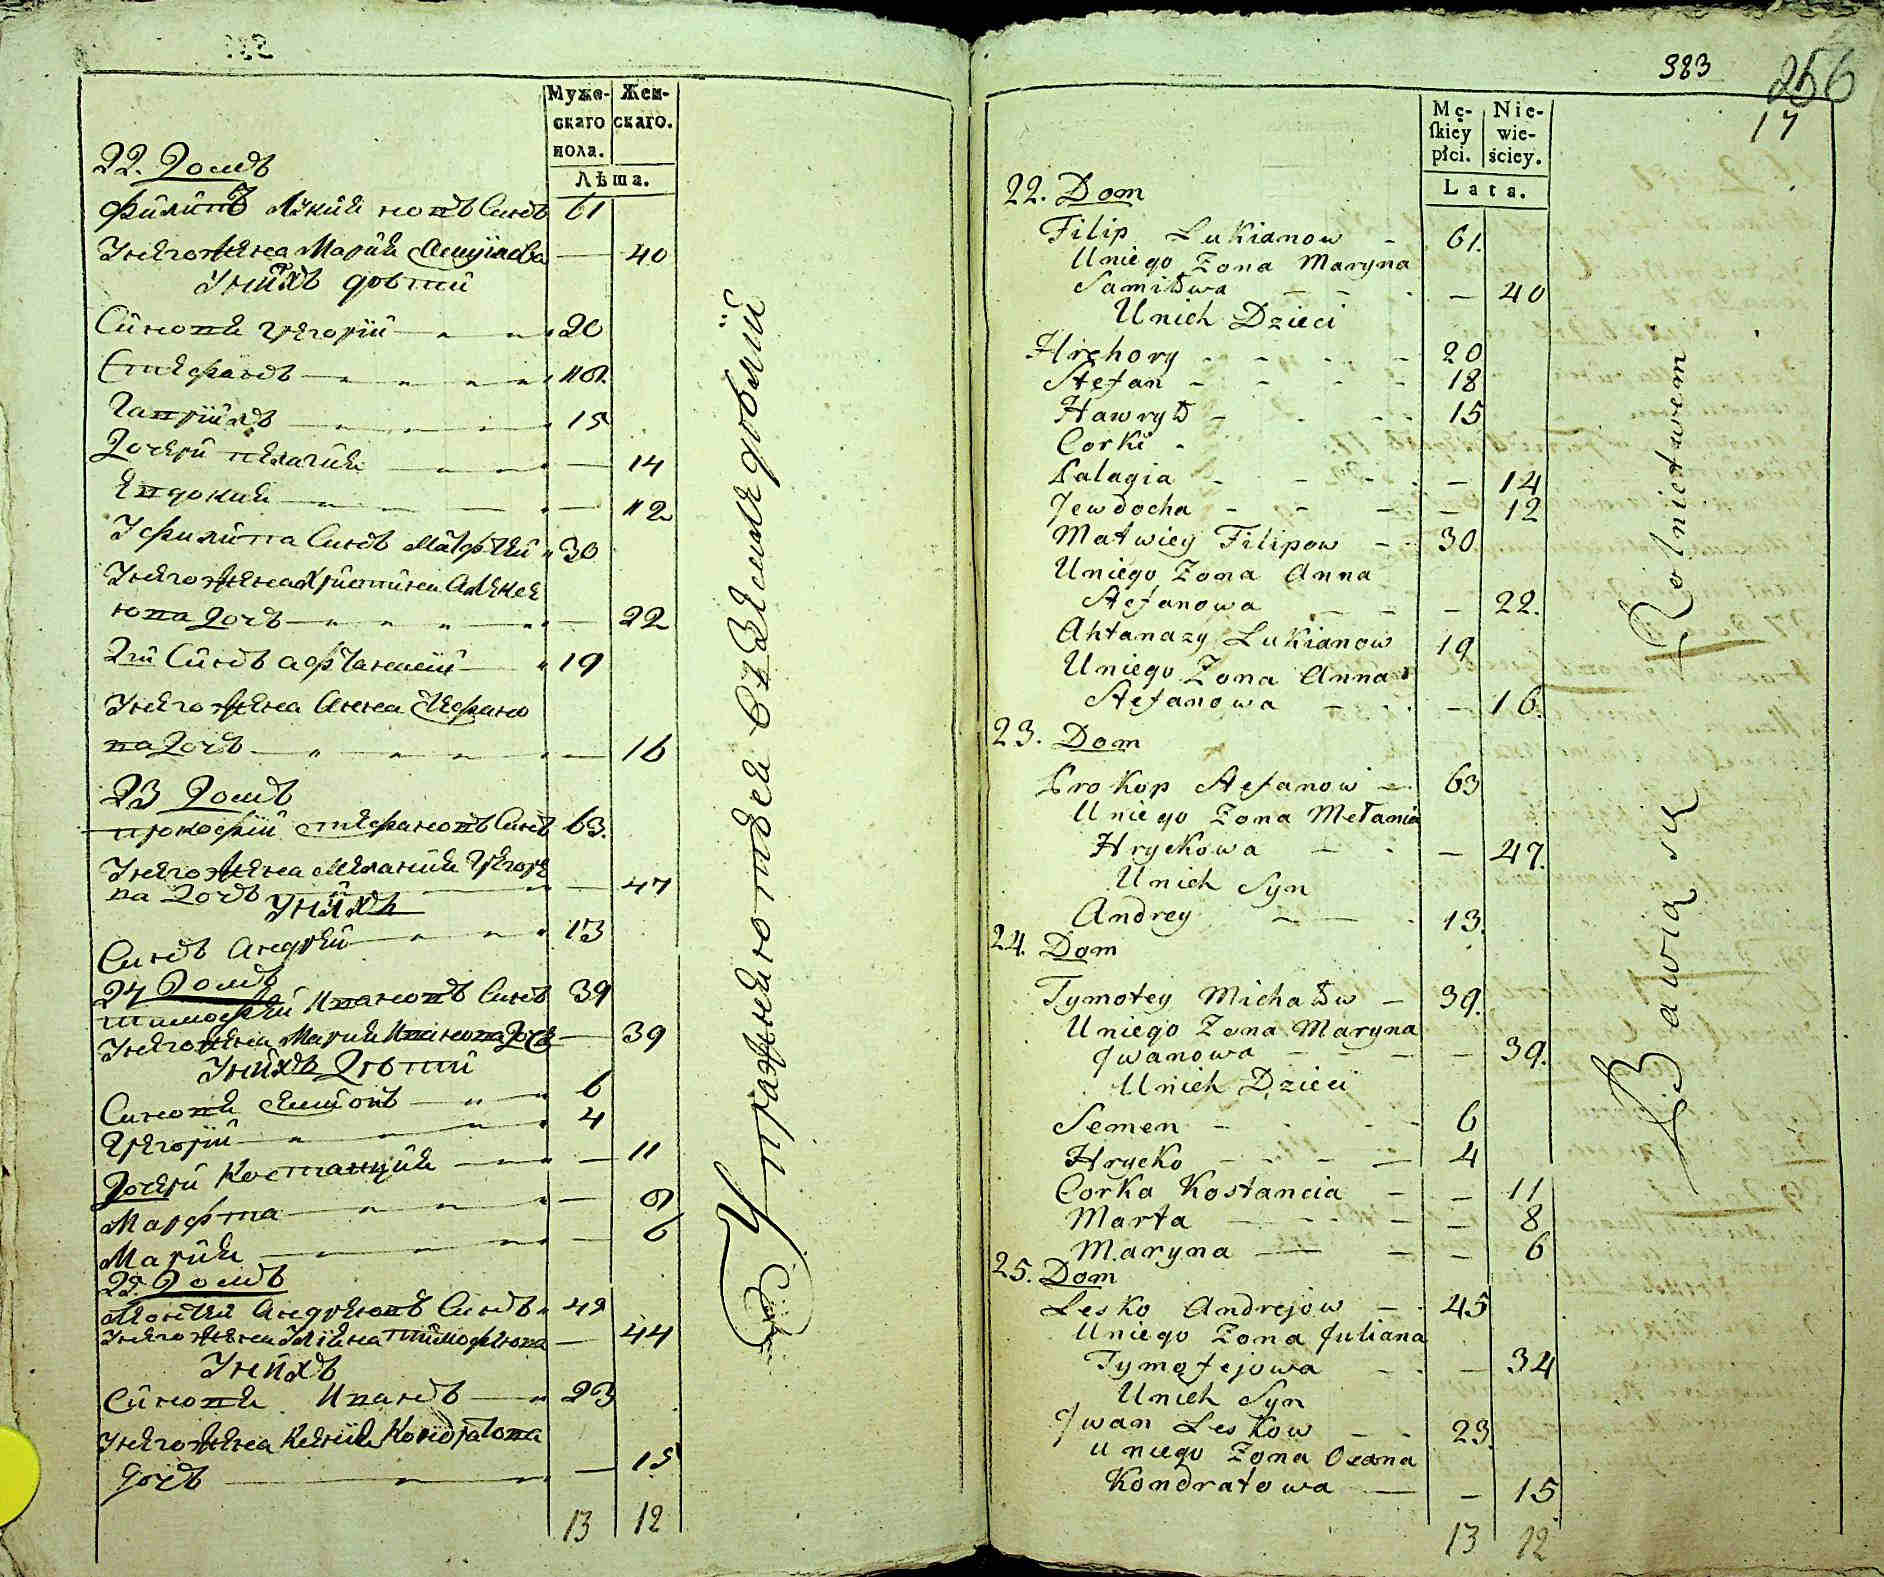 Муже-
скаго
пола.
Жен-
скаго.
Лѣта.
22. Домъ
Филипъ Лукиановъ Синъ 61
Унего жена Мария Самуилова — 40
Унихъ дѣти
Синови Григорий 20
Стефанъ 18
Гаврилъ 15
Дочери Пелагия — 14
Евдокия — 12
У Филипа Синъ Матфей 30
Унего жена Христина Алексе
юва Дочъ — 22
2й Синъ Афтанасий 19
Унего жена Анна Стефано
ва Дочъ — 16
23 Домъ
Прокофий Стефановъ Синъ 63.
Унего жена Мелания Григоре
ва Дочъ — 47
Унихъ
Синъ Андрей 13
24 Домъ
Тимофей Ивановъ Синъ 39
Унего жена Мария Иванова Дочъ — 39
Унихъ Дѣти
Синови Симонъ 6
Григорий 4
Дочери Костанция — 11
Марфта — 8
Мария — 6
25. Домъ
Андреювъ Синъ 45
Унего жена Улияна Тимофеюва — 44
Унихъ
Синови Иванъ 23
Унего жена Ксения Кондратова
дочъ — 15
13 12
Упражнаютсея въ Землядѣлий
383
256
17
Mę-
skiey
płci.
Nie-
wie-
ściey.
Lata.
22. Dom
Filip Lukianow - 61.
Uniego Zona Maryna
Samiłowa - - 40
Unich Dzieci
Hrehory - 20
Stefan - 18
Hawrył - 15
Corki -
Palagia - - 14
Jewdocha - - 12
Matwiey Filipow - 30
Uniego Zona Anna
Stefanowa - - 22.
Aftanazy Lukianow 19
Uniego Zona Anna
Stefanowa - - 16.
23. Dom
Prokop Stefanow - 63
Uniego Zona Mełania
Hryckowa - - 47.
Unich Syn
Andrey - 13.
24. Dom
Tymotey Michałow - 39.
Uniego Zona Maryna
Jwanowa - - 39.
Unich Dzieci
Semen - 6
Hrycko - 4
Corka Kostancia - - 11
Marta - - 8
Maryna - - 6
25. Dom
Lesko Andrejow - 45
Uniego Zona Juliana
Tymofejowa - - 34
Unich Syn
Jwan Leskow - 23.
Uniego Zona Oxana
Kondratowa - - 15
13 12
Bawią się Rolnictwem